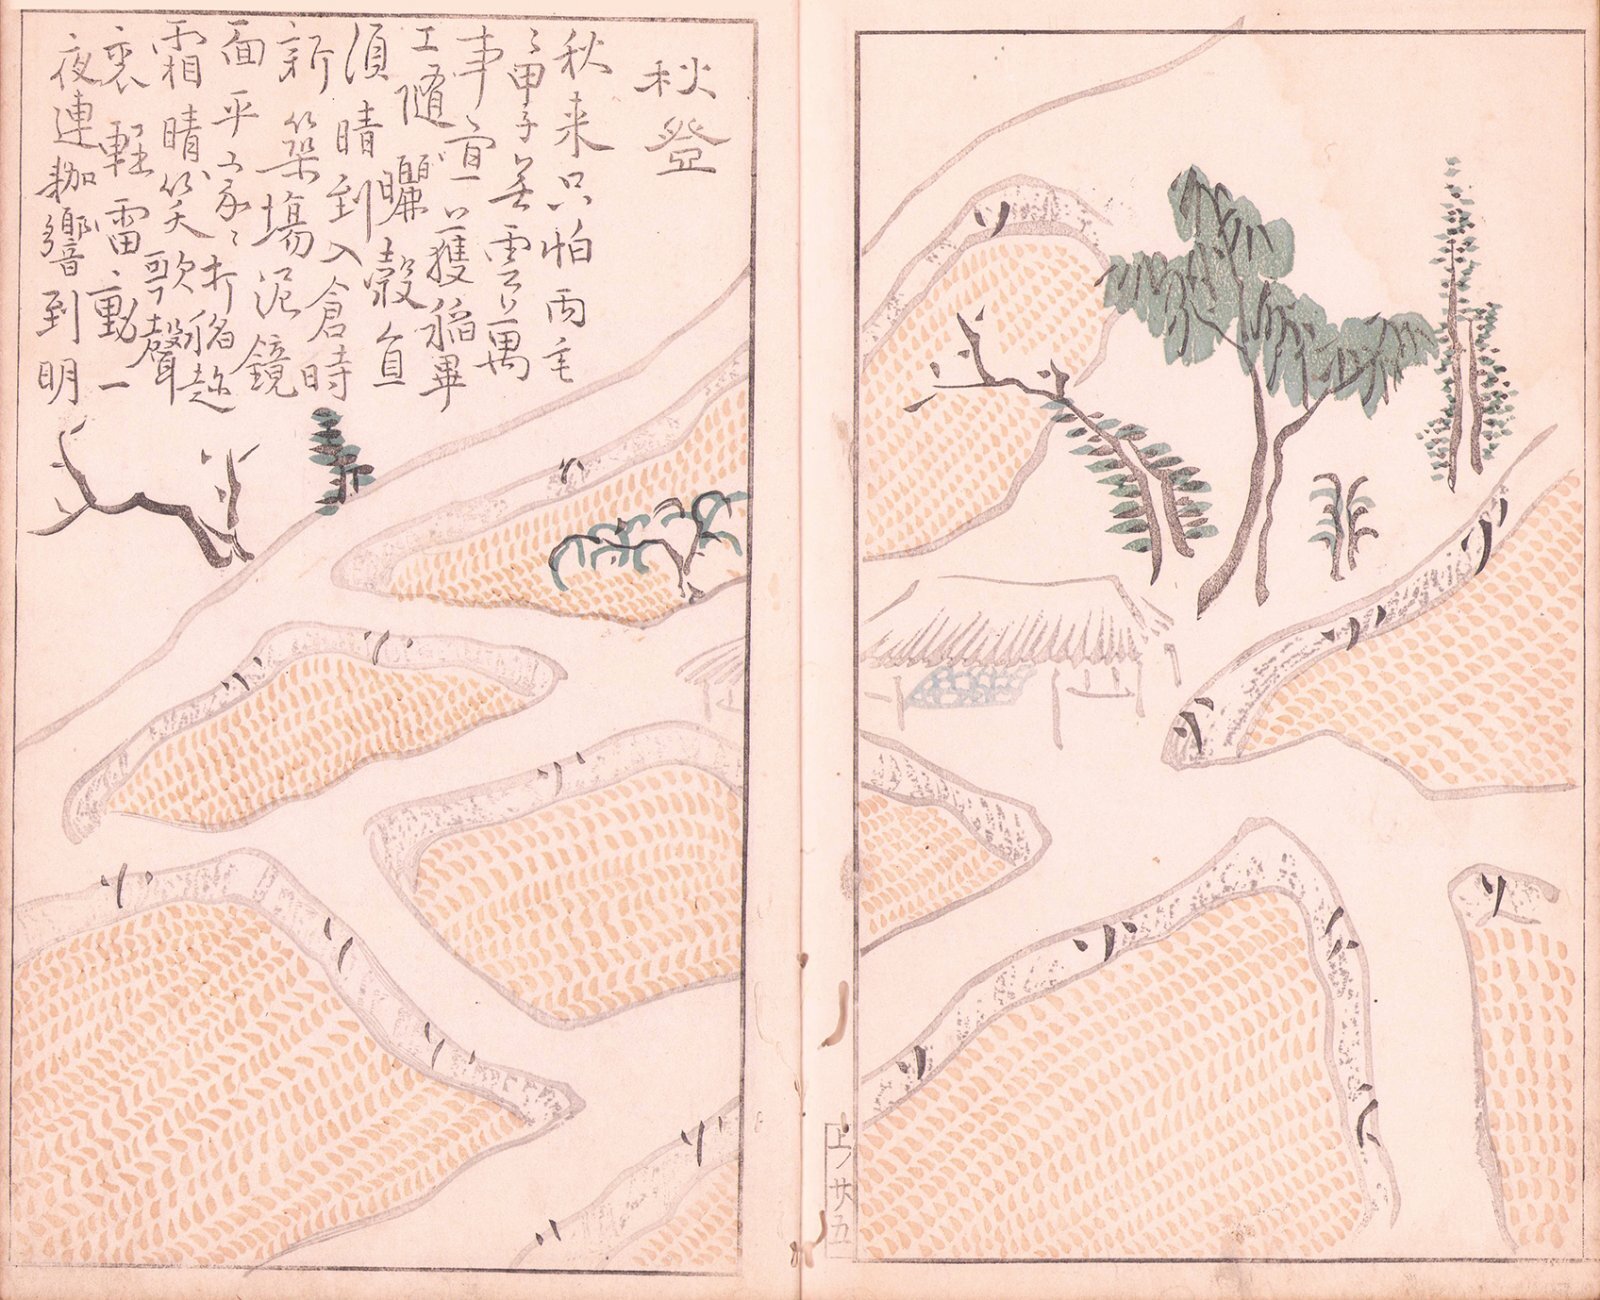 秋登
秋来只怕雨垂
〻甲子無雲萬
事宜獲稻畢
工隨曬穀直
須晴到入倉時
新築場泥鏡
面平家〻打稻趁
霜晴笑歌聲
裏輕雷動一
夜連耞響到明
上 廿五